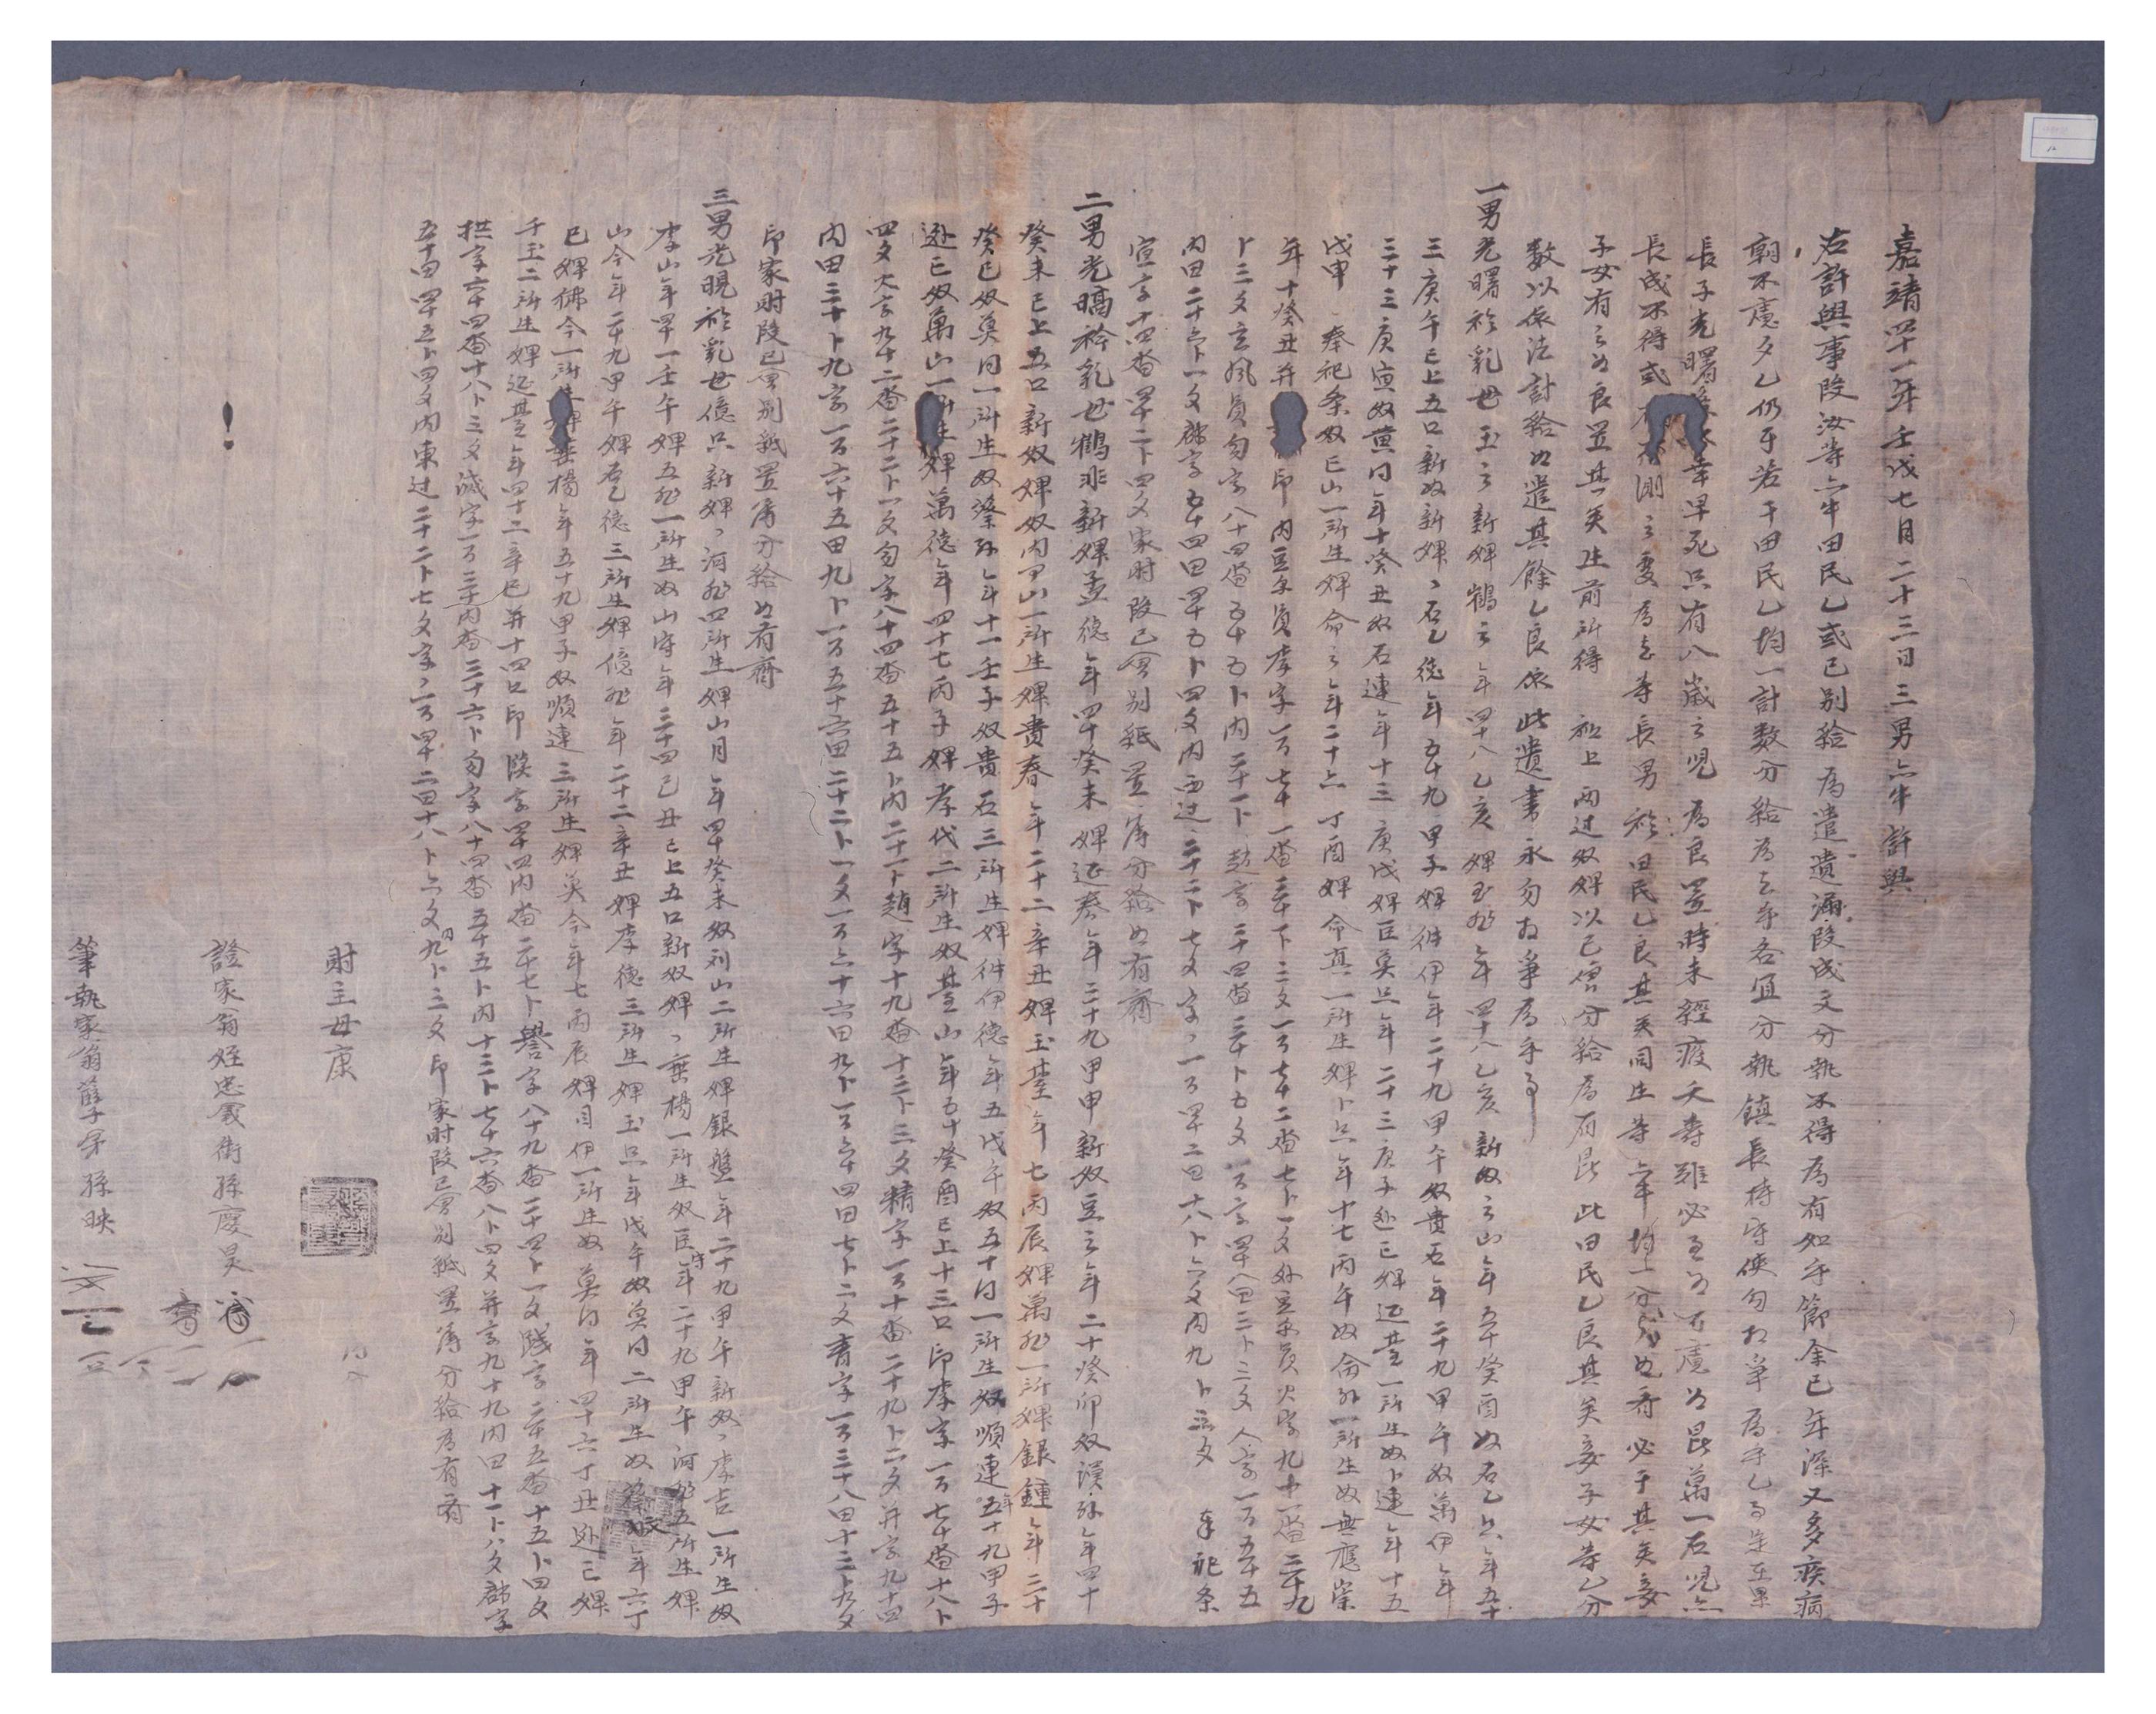 嘉靖四十一年壬戌七月二十三日三男亦中許與
右許與事段汝等亦中田民乙或已別給爲遣遺漏段成文分執不得爲有如乎節余已年深又多疾病
朝不慮夕乙仍于若干田民乙均一計數分給爲去乎各宜分執鎭長持守使勿相爭爲乎乙
長子光曙 幸早死只有八歲之兒爲良置時未經疫夭壽難必 萬一右兒亦
長成不得或有不測之變爲去等長男衿田民乙良其矣同生等亦中均一分 必于其矣妾
子女有之爲良置其矣生前所得 祖上兩邊奴婢以已曾分給爲有昆此田民乙良其矣妾子女等乙分
數以依法計給爲遣其餘乙良依此遺書永勿相爭爲乎事
一男光曙衿乳母玉之新婢鶴之年四十八乙亥婢玉非年四十八乙亥新奴之山年五十癸酉奴石乙只年五十
三庚午已上五口新奴新婢石乙德年五十九甲子婢件伊年二十九甲午奴貴石年二十九甲午奴萬伊年
三十三庚寅奴黃同年十癸丑奴石連年十三庚戌婢巨 只年二十三庚子 婢延臺一所生奴卜連年十五
戊申 奉祀條奴巳山一所生婢命之年二十六丁酉婢命眞一所生婢卜只年十七丙午奴命孫一所生奴無應崇
年十癸丑幷 印內豆 員孝字一百七十一畓 卜三文一百七十二畓七卜一文外豆 員火字九十一畓二十九
卜三文立風員勿字八十四畓五十五卜內二十一卜趙字二十四畓三十卜五文 人字一百五十五
內田二十六卜一文 字五十四田四十五卜四文內西邊二十二卜七文字一百四十二田十八卜六文內九卜三文 奉祀條
宣字十四畓四十二卜四文家財段已曾別紙置簿分給爲有齊
二男光暠衿乳母鶴非新婢孟德年四十癸未婢延春年二十九甲申新奴豆之年二十癸卯奴漢孫年四十
癸未已上五口新奴婢奴內 山一所生婢貴春年二十二辛丑婢玉臺年七丙辰婢萬非一所婢銀鍾年三十
癸巳奴莫同一所生奴 孫年十一壬子奴貴石三所生婢件伊德年五戊午奴五十同一所生奴順連年五十九甲子
 奴萬山一所生婢萬德年四十七丙子婢孝代二所生奴 山年五十癸酉已上十三口印孝字一百七十畓十八卜
四文火字九十二畓二十二卜一文勿字八十四畓五十五卜內二十一卜趙字十九畓十三卜三文精字一百十畓二十九卜二文幷字九十四
內田三十卜九字一百六十五田九卜一百五十六田二十二卜一文一百六十六田九卜一百六十四田七卜二文靑字一百三十八田十三卜九文
印家財段已曾別紙置簿分給爲有齊
三男光晛衿乳母億只新婢河非四所生婢山月年四十癸未奴列山二所生婢銀盤年二十九甲午新奴孝吉一所生奴
孝山年四十一壬午婢五非一所生奴山守年三十四己丑已上五口新奴婢垂楊一所生奴 年二十九甲午河非五所生婢
山今年二十九甲午婢石乙德三所生婢億非年二十二辛丑婢孝德三所生婢玉只年戊午奴莫同二所生奴 年六丁
巳婢佛今一所生婢垂楊年五十九甲子奴順連三所生婢莫今年七丙辰婢目伊一所生奴莫同年四十六丁丑 婢
千玉二所生婢延臺年四十二辛巳幷十四口印 字四十四內畓二十七卜譽字八十九畓二十四卜一文踐字二十五畓十五卜四文
拱字六十四畓十八卜三文滅字一百三十內畓三十六卜勿字八十四畓五十五卜內十三卜七十六畓八卜四文幷字九十九內田十一卜八文 字
五十四四十五卜四文內東邊二十二卜七文字一百四十二田十八卜六文內九卜三文印家財段已曾別紙置簿分給爲有齊
財主母康
證家翁姪忠義衛孫慶昊
筆執家翁孽弟孫映